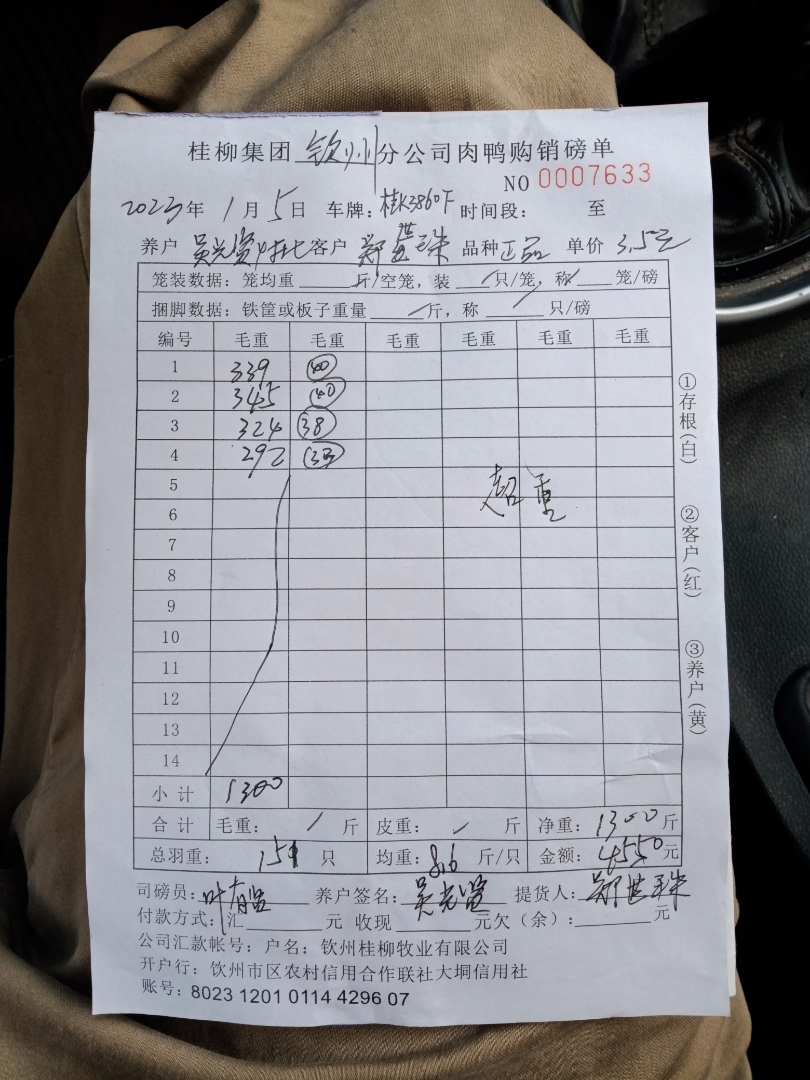 桂柳集团 钦州 分公司肉鸭购销磅单
NO 0007633
2023年 1月 5日 车牌: 桂K3860F 时间段: 至
养户 吴光贤 客户 郑世珠 品种 正品 单价 3.5元
笼装数据: 笼均重 斤/空笼, 装 只/笼, 称 笼/磅
捆脚数据: 铁筐或板子重量 斤, 称 只/磅
编号 毛重 毛重 毛重 毛重 毛重 毛重
1 339 40
2 345 40
3 324 38
4 292 33
5
超重
6
7
8
9
10
11
12
13
14
小计 1300
合计 毛重: / 斤 皮重: / 斤 净重: 1300斤
总羽重: 151 只 均重: 8.6 斤/只 金额: 4550元
司磅员: 养户签名: 提货人: 郑世珠
付款方式: 汇 元 收现 元欠(余): 元
公司汇款帐号: 户名: 钦州桂柳牧业有限公司
开户行: 钦州市区农村信用合作联社大垌信用社
账号: 8023 1201 0114 4296 07
①存根(白)
②客户(红)
③养户(黄)